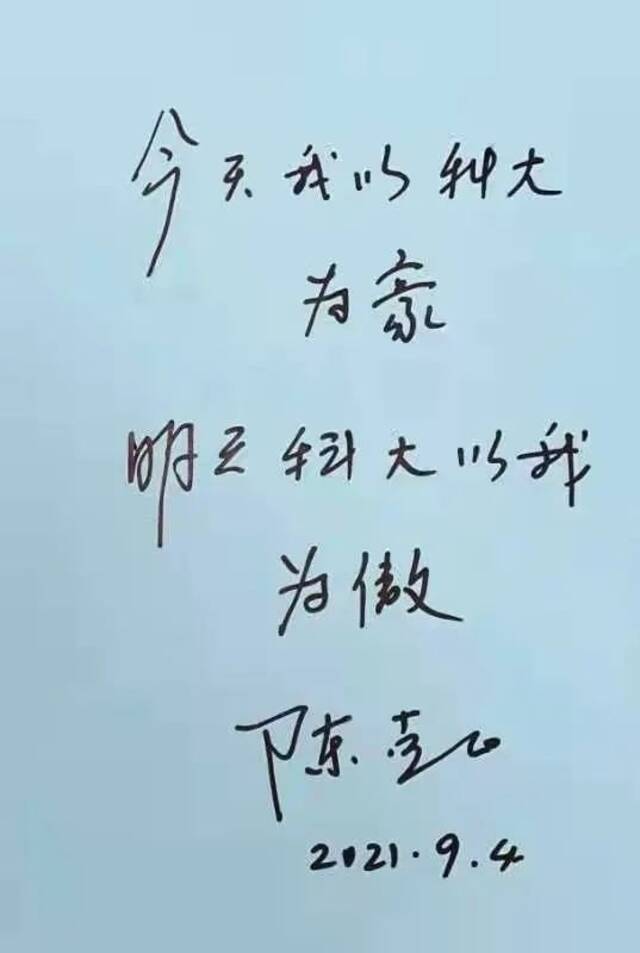 今天我以科大
为豪
明天科大以我
为傲
陈
2021.9.4